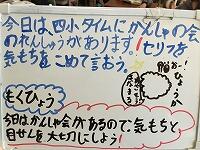 今日は、四小タイムにかんしゃの会
のれんしゅうがあります。！セリフを
気もちをこめて言おう。
もくひょう
今日はかんしゃ会があるので気もちと、
目せんを大切にしよう！